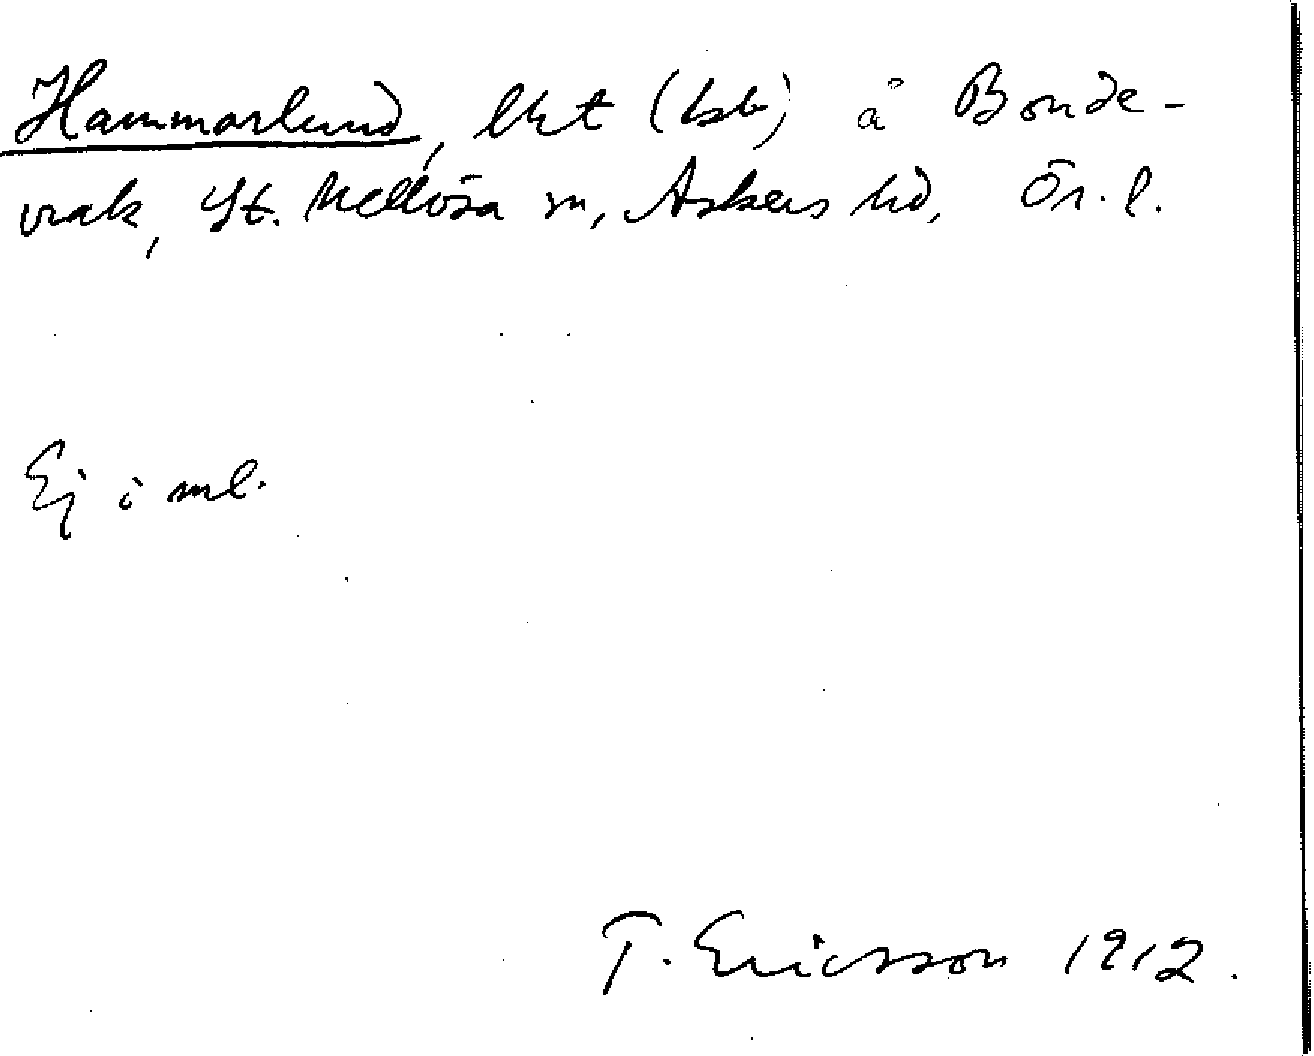 Hammarlund, lht (bsb) å Bonde-
vrak, St. Mellösa sn, Askers hd, Ör. l.
Ej i ml.
T. Ericsson 1912.